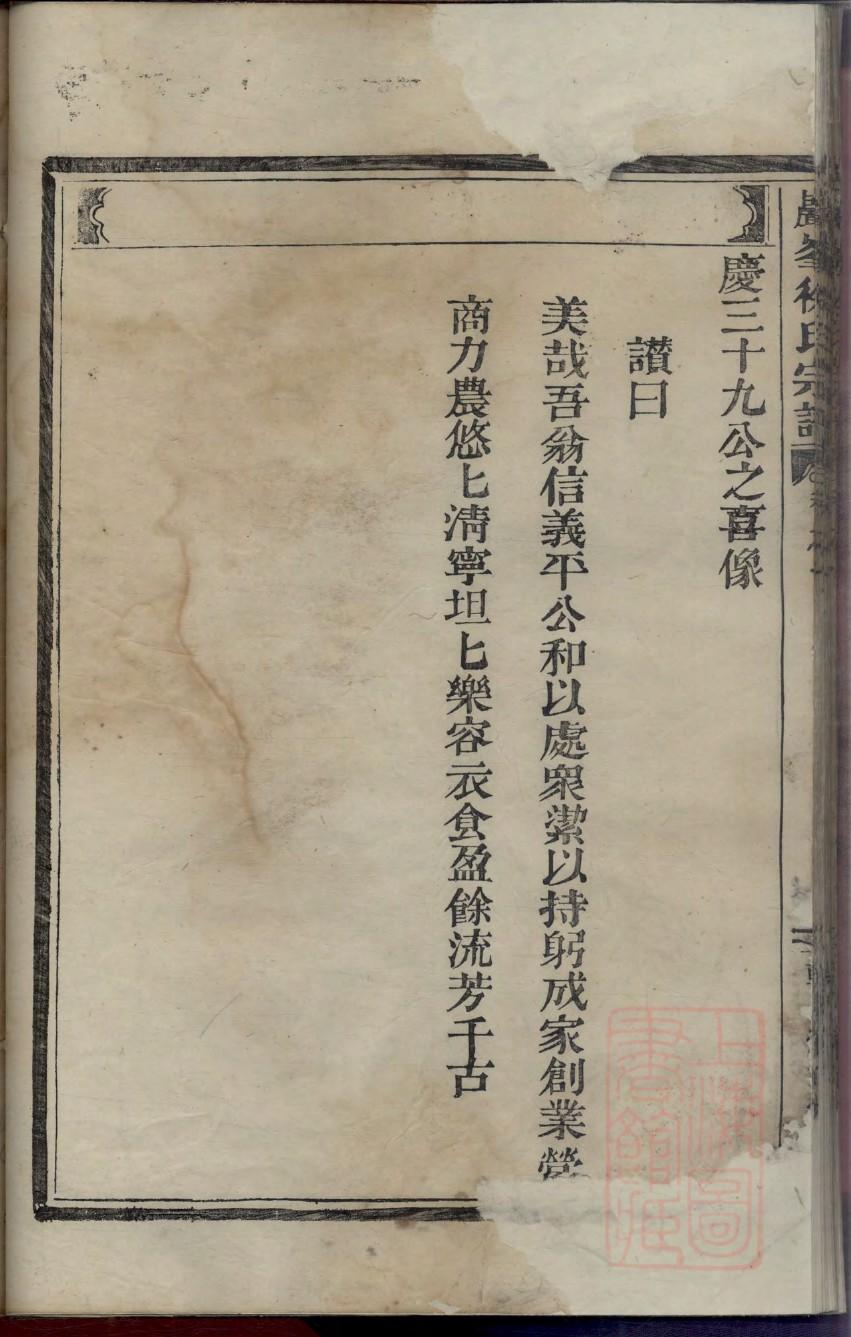 巖峯徐氏宗譜
慶三十九公之喜像
讃曰
美哉吾翁信義平公和以處衆潔以持躬成家創業營
商力農悠匕淸寧坦匕樂容衣食盈餘流芳千古
上海圖
書館藏